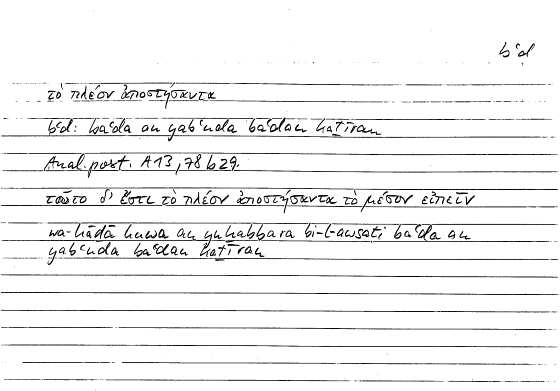 bʿd
τὸ πλέον ἀποστήσαντα
bʿd: baʿda an yabʿuda baʿdan kaṯīran
Anal. post. A 13, 78 b 29.
τοῦτο δ' ἔστι τὸ πλέον ἀποστήσαντα τὸ μέσον εἰπεῖν
wa-hāḏā huwa an yuḫabbara bi-l-awsaṭi baʿda an
yabʿuda baʿdan kaṯīran